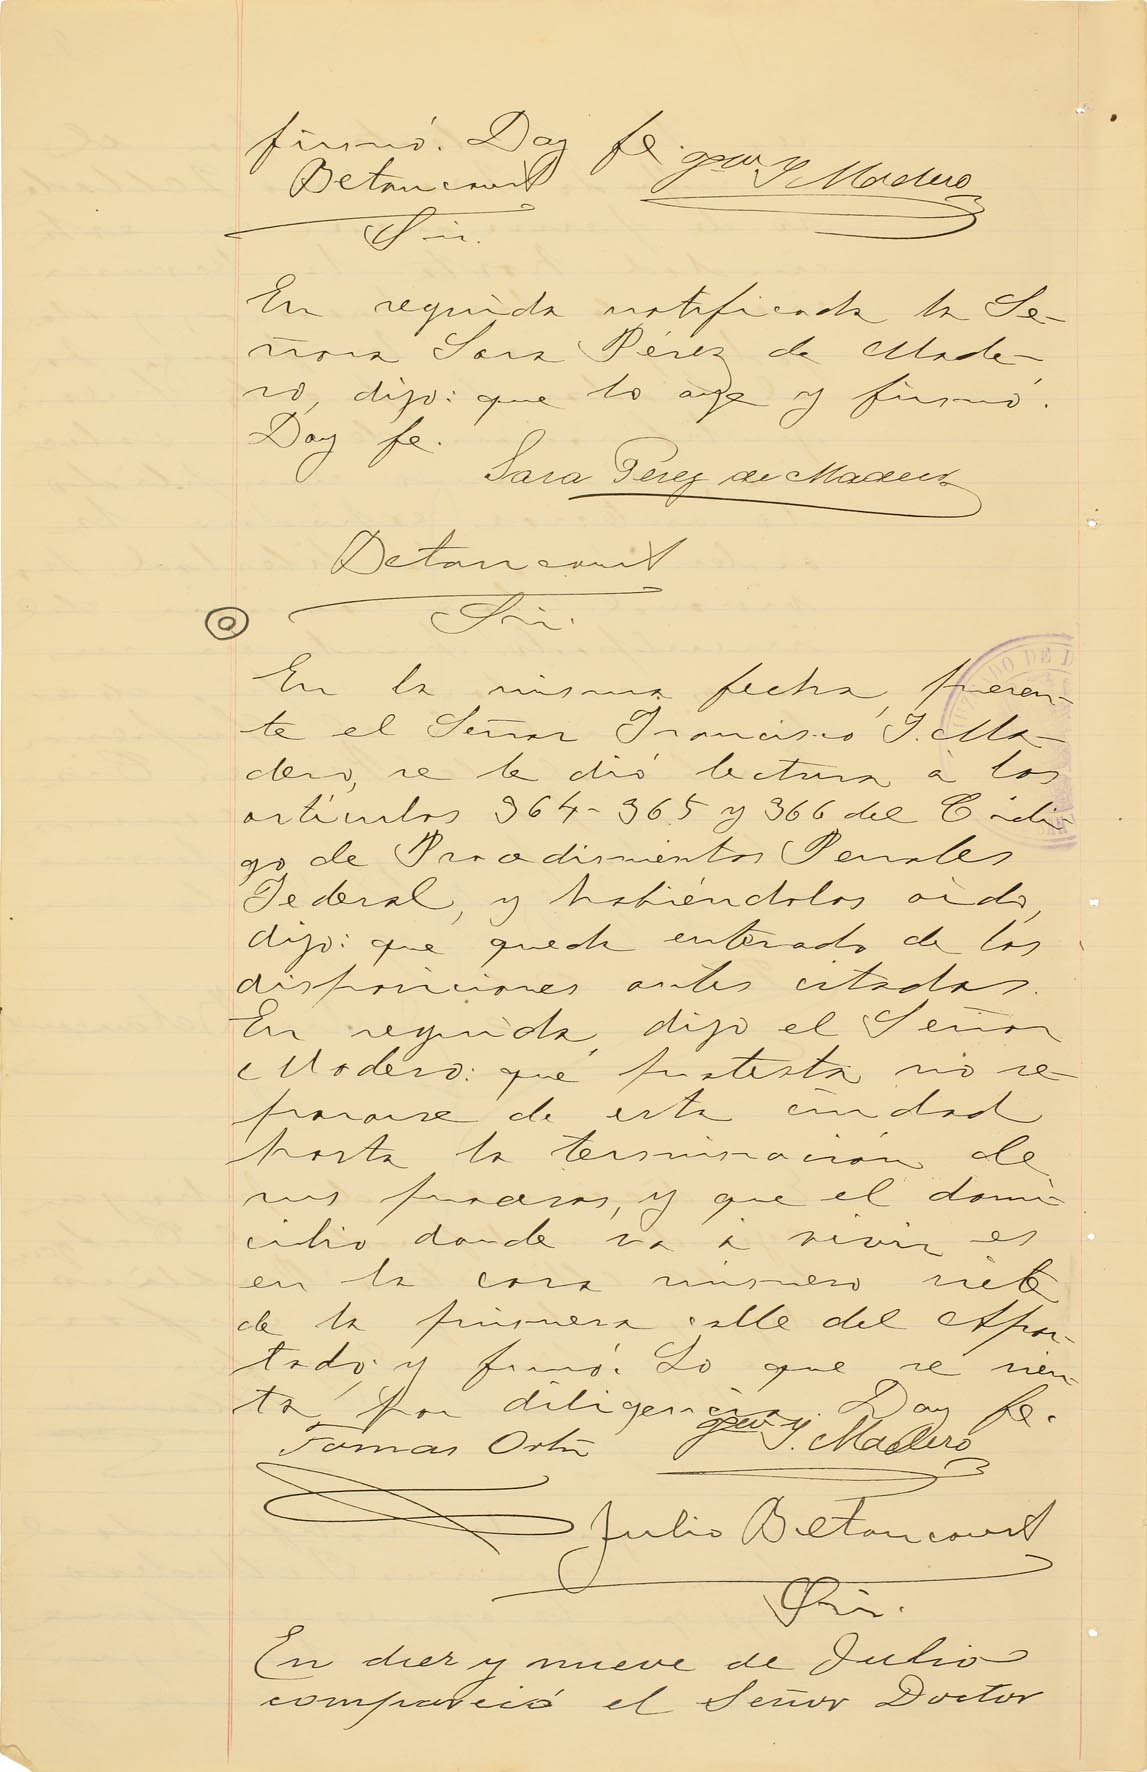 firmó. Doy fe. Fran I. Madero
Betancourt
Srio.
En seguida notificada la Se-
ñora Sara Pérez de Made-
ro, dijo: que lo oye y firmó.
Doy fe.
Sara Perez de Madero
Betancourt
Srio.
En la misma fecha, presen-
te el Señor Francisco I. Ma-
dero, se le dió lectura á los
artículos 364-365 y 366 del Códi-
go de Procedimientos Penales
Federal, y habiéndolos oído,
dijo: que queda enterado de las
disposiciones antes citadas.
En seguida, dijo el Señor
Madero: que protesta no se-
pararse de esta ciudad
hasta la terminación de
sus procesos, y que el domi-
cilio donde va á vivir es
en la casa número siete
de la primera calle del Apar-
tado; y firmó. Lo que se sien-
ta por diligencia. Doy fe.
Tomas Ortiz
I. Madero
Julio Betancourt
Srio.
En diez y nueve de Julio
compareció el Señor Doctor
JUZGADO DE D